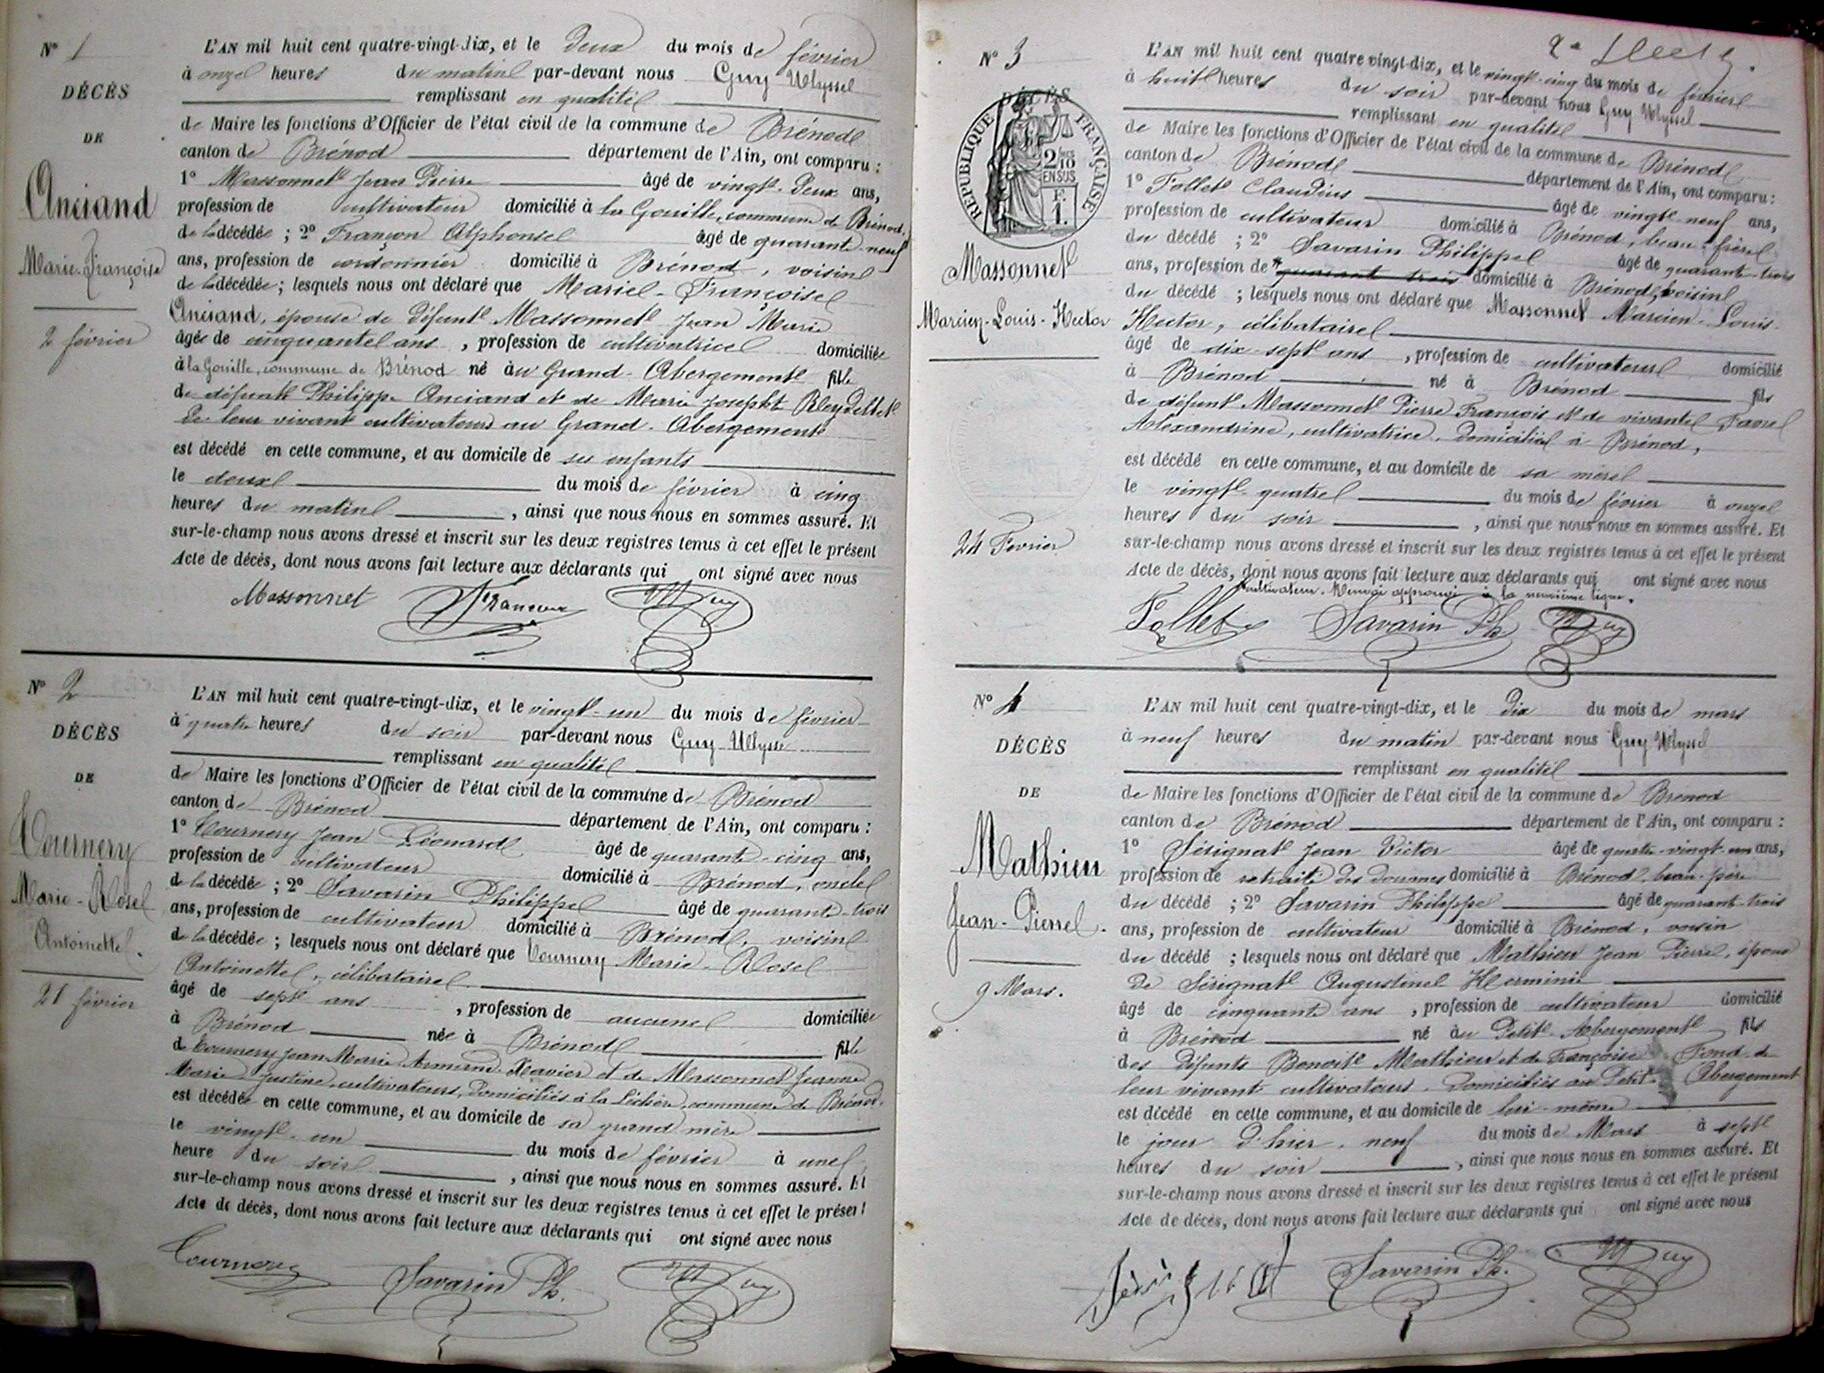 N° 1
DÉCÈS
DE
Anciand
Marie-Françoise
2 février
L'AN mil huit cent quatre-vingt-dix, et le deux du mois de février
à onze heures du matin par-devant nous Guy Ulysse
remplissant en qualité
de Maire les fonctions d'Officier de l'état civil de la commune de Brénod
canton de Brénod département de l'Ain, ont comparu :
1° Massonnet Jean Pierre âgé de vingt-deux ans,
profession de cultivateur domicilié à la Gouille, commune de Brénod,
de la décédée ; 2° Françon Alphonse âgé de quarante-neuf
ans, profession de cordonnier domicilié à Brénod, voisin
de la décédée ; lesquels nous ont déclaré que Marie-Françoise
Anciand, épouse de défunt Massonnet Jean Marie
âgée de cinquante ans, profession de cultivatrice domiciliée
à la Gouille, commune de Brénod né au Grand-Abergement fille
de défunt Philippe Anciand et de Marie Josephte Reydellet
de leur vivant cultivateurs au Grand-Abergement
est décédé en cette commune, et au domicile de ses enfants
le deux du mois de février à cinq
heures du matin, ainsi que nous nous en sommes assuré. Et
sur-le-champ nous avons dressé et inscrit sur les deux registres tenus à cet effet le présent
Acte de décès, dont nous avons fait lecture aux déclarants qui ont signé avec nous
Massonnet Françon U Guy
N° 2
DÉCÈS
DE
Tournery
Marie-Rose
Antoinette.
21 février
L'AN mil huit cent quatre-vingt-dix, et le vingt-un du mois de février
à quatre heures du soir par-devant nous Guy Ulysse
remplissant en qualité
de Maire les fonctions d'Officier de l'état civil de la commune de Brénod
canton de Brénod département de l'Ain, ont comparu :
1° Tournery Jean Léonard âgé de quarante-cinq ans,
profession de cultivateur domicilié à Brénod, oncle
de la décédée ; 2° Savarin Philippe âgé de quarante-trois
ans, profession de cultivateur domicilié à Brénod, voisin
de la décédée ; lesquels nous ont déclaré que Tournery Marie-Rose
Antoinette, célibataire
âgé de sept ans, profession de aucune domiciliée
à Brénod née à Brénod fille
de Tournery Jean Marie Armand Xavier et de Massonnet Jeanne
Marie Justine, cultivateurs, domiciliés à la Léchère, commune de Brénod,
est décédée en cette commune, et au domicile de sa grand mère
le vingt-un du mois de février à une
heure du soir, ainsi que nous nous en sommes assuré. Et
sur-le-champ nous avons dressé et inscrit sur les deux registres tenus à cet effet le présent
Acte de décès, dont nous avons fait lecture aux déclarants qui ont signé avec nous
Tournery Savarin Ph. U Guy
N° 3
DÉCÈS
RÉPUBLIQUE FRANÇAISE
2/10 EN SUS
F. 1.
Massonnet
Marcien-Louis-Hector
24 Fevrier
L'AN mil huit cent quatre-vingt-dix, et le vingt-cinq du mois de février
à huit heures du soir par-devant nous Guy Ulysse
remplissant en qualité
de Maire les fonctions d'Officier de l'état civil de la commune de Brénod
canton de Brénod département de l'Ain, ont comparu :
1° Follet Claudius âgé de vingt-neuf ans,
profession de cultivateur domicilié à Brénod, beau-frère
du décédé ; 2° Savarin Philippe âgé de quarante-trois
ans, profession de quarante trois domicilié à Brénod, voisin
du décédé ; lesquels nous ont déclaré que Massonnet Marcien-Louis-
Hector, célibataire
âgé de dix-sept ans, profession de cultivateur domicilié
à Brénod né à Brénod fils
de défunt Massonnet Pierre François et de vivante Favre
Alexandrine, cultivatrice, domiciliée à Brénod,
est décédé en cette commune, et au domicile de sa mère
le vingt-quatre du mois de février à onze
heures du soir, ainsi que nous nous en sommes assuré. Et
sur-le-champ nous avons dressé et inscrit sur les deux registres tenus à cet effet le présent
Acte de décès, dont nous avons fait lecture aux déclarants qui ont signé avec nous
cultivateur. Renvoi approuvé à la neuvième ligne.
Follet Savarin Ph U Guy
N° 4
DÉCÈS
DE
Mathieu
Jean-Pierre.
9 Mars.
L'AN mil huit cent quatre-vingt-dix, et le dix du mois de mars
à neuf heures du matin par-devant nous Guy Ulysse
remplissant en qualité
de Maire les fonctions d'Officier de l'état civil de la commune de Brénod
canton de Brénod département de l'Ain, ont comparu :
1° Sérignat Jean Victor âgé de quatre-vingt-un ans,
profession de retraité des douanes domicilié à Brénod, beau-père
du décédé ; 2° Savarin Philippe âgé de quarante-trois
ans, profession de cultivateur domicilié à Brénod, voisin
du décédé ; lesquels nous ont déclaré que Mathieu Jean Pierre, époux
de Sérignat Augustine Herminie
âgé de cinquante ans, profession de cultivateur domicilié
à Brénod né au Petit-Abergement fils
des défunts Benoît Mathieu et de Françoise Fond de
leur vivant cultivateurs domiciliés au Petit-Abergement
est décédé en cette commune, et au domicile de lui-même
le jour d'hier, neuf du mois de Mars à sept
heures du soir, ainsi que nous nous en sommes assuré. Et
sur-le-champ nous avons dressé et inscrit sur les deux registres tenus à cet effet le présent
Acte de décès, dont nous avons fait lecture aux déclarants qui ont signé avec nous
Savarin Ph. U Guy